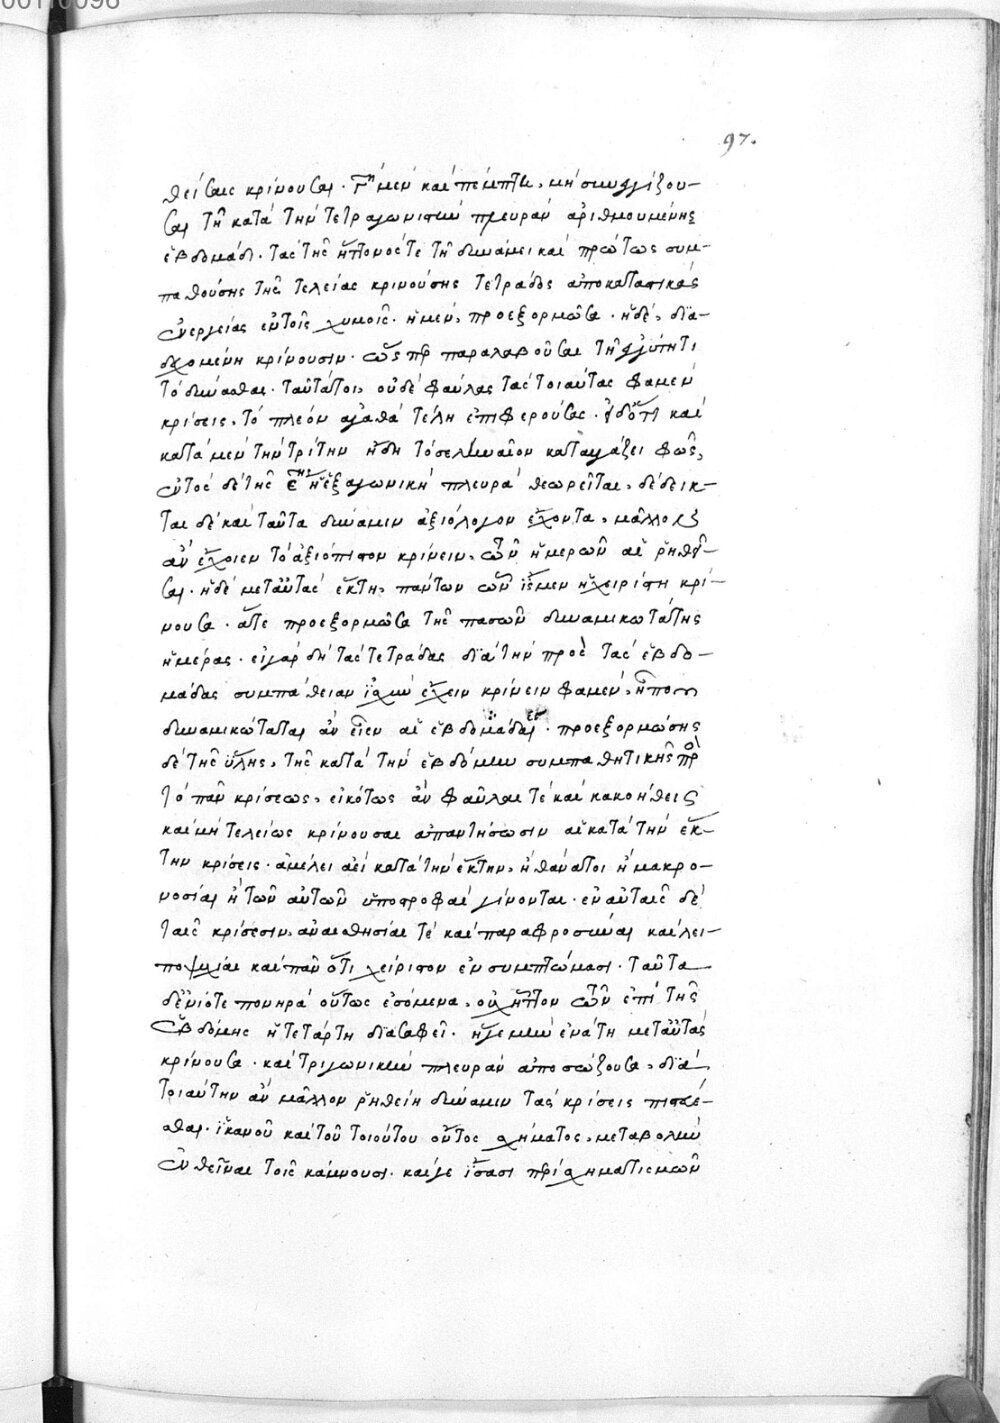 97.
θεῖσαι κρίνουσαι. Γη μὲν καὶ πέμπτη, μὴ συμφθίζου-
σαι τῇ κατὰ τὴν τετραγωνικὴν πλευρὰν ἀριθμουμένης
ἑβδομάδι. τὰς τῆς ἥττονός τε τῇ δυνάμει καὶ πρώτως συμ-
παθούσης τῆς τελείας κρινούσης τετράδος ἀποκαταστικὰς
ἐνεργείας ἐν τοῖς χυμοῖς. ἡ μὲν, προεξορμῶσα. ἡ δὲ, δια-
δεχομένη κρίνουσιν. ὥσπερ παραλαβοῦσαι τῇ ἐγγύτητι
τὸ δύνασθαι. ταῦτά τοι, οὐδὲ φαύλας τὰς τοιαύτας φαμὲν
κρίσεις, τὸ πλέον ἀγαθὰ τέλη ἐπιφερούσας. διότι καὶ
κατὰ μὲν τὴν τρίτην ἤδη τὸ σεληναῖον καταυγάζει φῶς,
ἐντὸς δὲ τῆς εης ἡ ἑξαγωνικὴ πλευρὰ θεωρεῖται, δέδεικ-
ται δὲ καὶ ταῦτα δύναμιν ἀξιόλογον ἔχοντα, μᾶλλον
ἂν ἔχοιεν τὸ ἀξιόπιστον κρίνειν, ὧν ἡμερῶν αἱ ῥηθεῖ-
σαι. ἡ δὲ μετ' αὐτὰς ἕκτη, πάντων ὧν ἴσμεν ἡ χειρίστη κρί-
νουσα. ἅτε προεξορμῶσα τῆς πασῶν δυναμικωτάτης
ἡμέρας. εἰ γὰρ δὴ τὰς τετράδας διὰ τὴν πρὸς τὰς ἑβδο-
μάδας συμπάθειαν ἰσχὺν ἔχειν κρίνειν φαμὲν, ἦπου
δυναμικώταται ἂν εἶεν αἱ ἑβδομάδες. προεξορμώσης
δὲ τῆς ὕλης, τῆς κατὰ τὴν ἑβδόμην συμπαθητικῆς πρὸς
τὸ πᾶν κρίσεως, εἰκότως ἂν φαῦλαι τὲ καὶ κακοήθεις
καὶ μὴ τελείως κρίνουσαι ἀπαντήσωσιν αἱ κατὰ τὴν ἕκ-
την κρίσεις. ἀμέλει ἀεὶ κατὰ τὴν ἕκτην, ἢ θάνατοι ἢ μακρο-
νοσίαι ἢ τῶν αὐτῶν ὑποστροφαὶ γίνονται. ἐν αὐταῖς δὲ
ταῖς κρίσεσιν, ἀναισθησίαι τὲ καὶ παραφροσύναι καὶ λει-
ποψυχίαι καὶ πᾶν ὅτι χείριστον ἐν συμπτώμασι. ταῦτα
δ' ἐνίοτε πονηρὰ οὕτως ἐσόμενα, οὐχ ἧττον τῶν ἐπὶ τῆς
ἑβδόμης ἡ τετάρτη διασαφεῖ. ἥγε μὴν ἐνάτη μετ' αὐτὰς
κρίνουσα. καὶ τριγωνικὴν πλευρὰν ἀποσώζουσα, διὰ
τοιαύτην ἂν μᾶλλον ῥηθείη δύναμιν τὰς κρίσεις ποιεῖ-
σθαι. ἱκανοῦ καὶ τοῦ τοιούτου ὄντος σχήματος, μεταβολὴν
ἐνθεῖναι τοῖς κάμνουσι. καίγε ἴσασι περὶ σχηματισμῶν